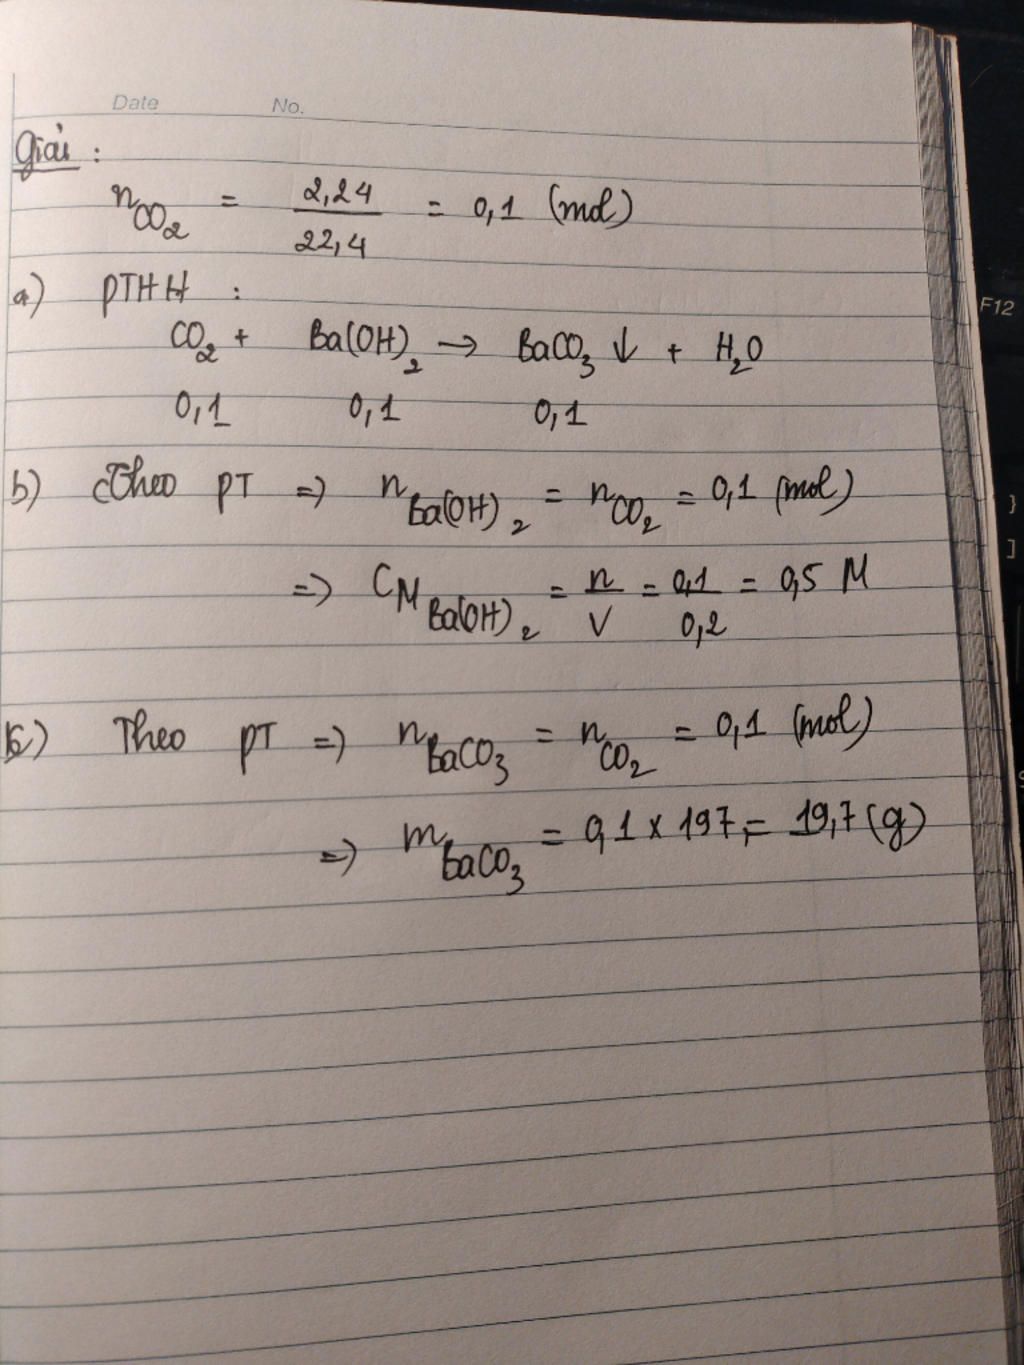 Date No.
Giải :
n CO₂ = 2,24 / 22,4 = 0,1 (mol)
a) PTHH :
CO₂ + Ba(OH)₂ → BaCO₃ ↓ + H₂O
0,1 0,1 0,1
b) Theo PT => n Ba(OH)₂ = n CO₂ = 0,1 (mol)
=> CM Ba(OH)₂ = n / V = 0,1 / 0,2 = 0,5 M
c) Theo PT => n BaCO₃ = n CO₂ = 0,1 (mol)
=> m BaCO₃ = 0,1 x 197 = 19,7 (g)
F12
}
]